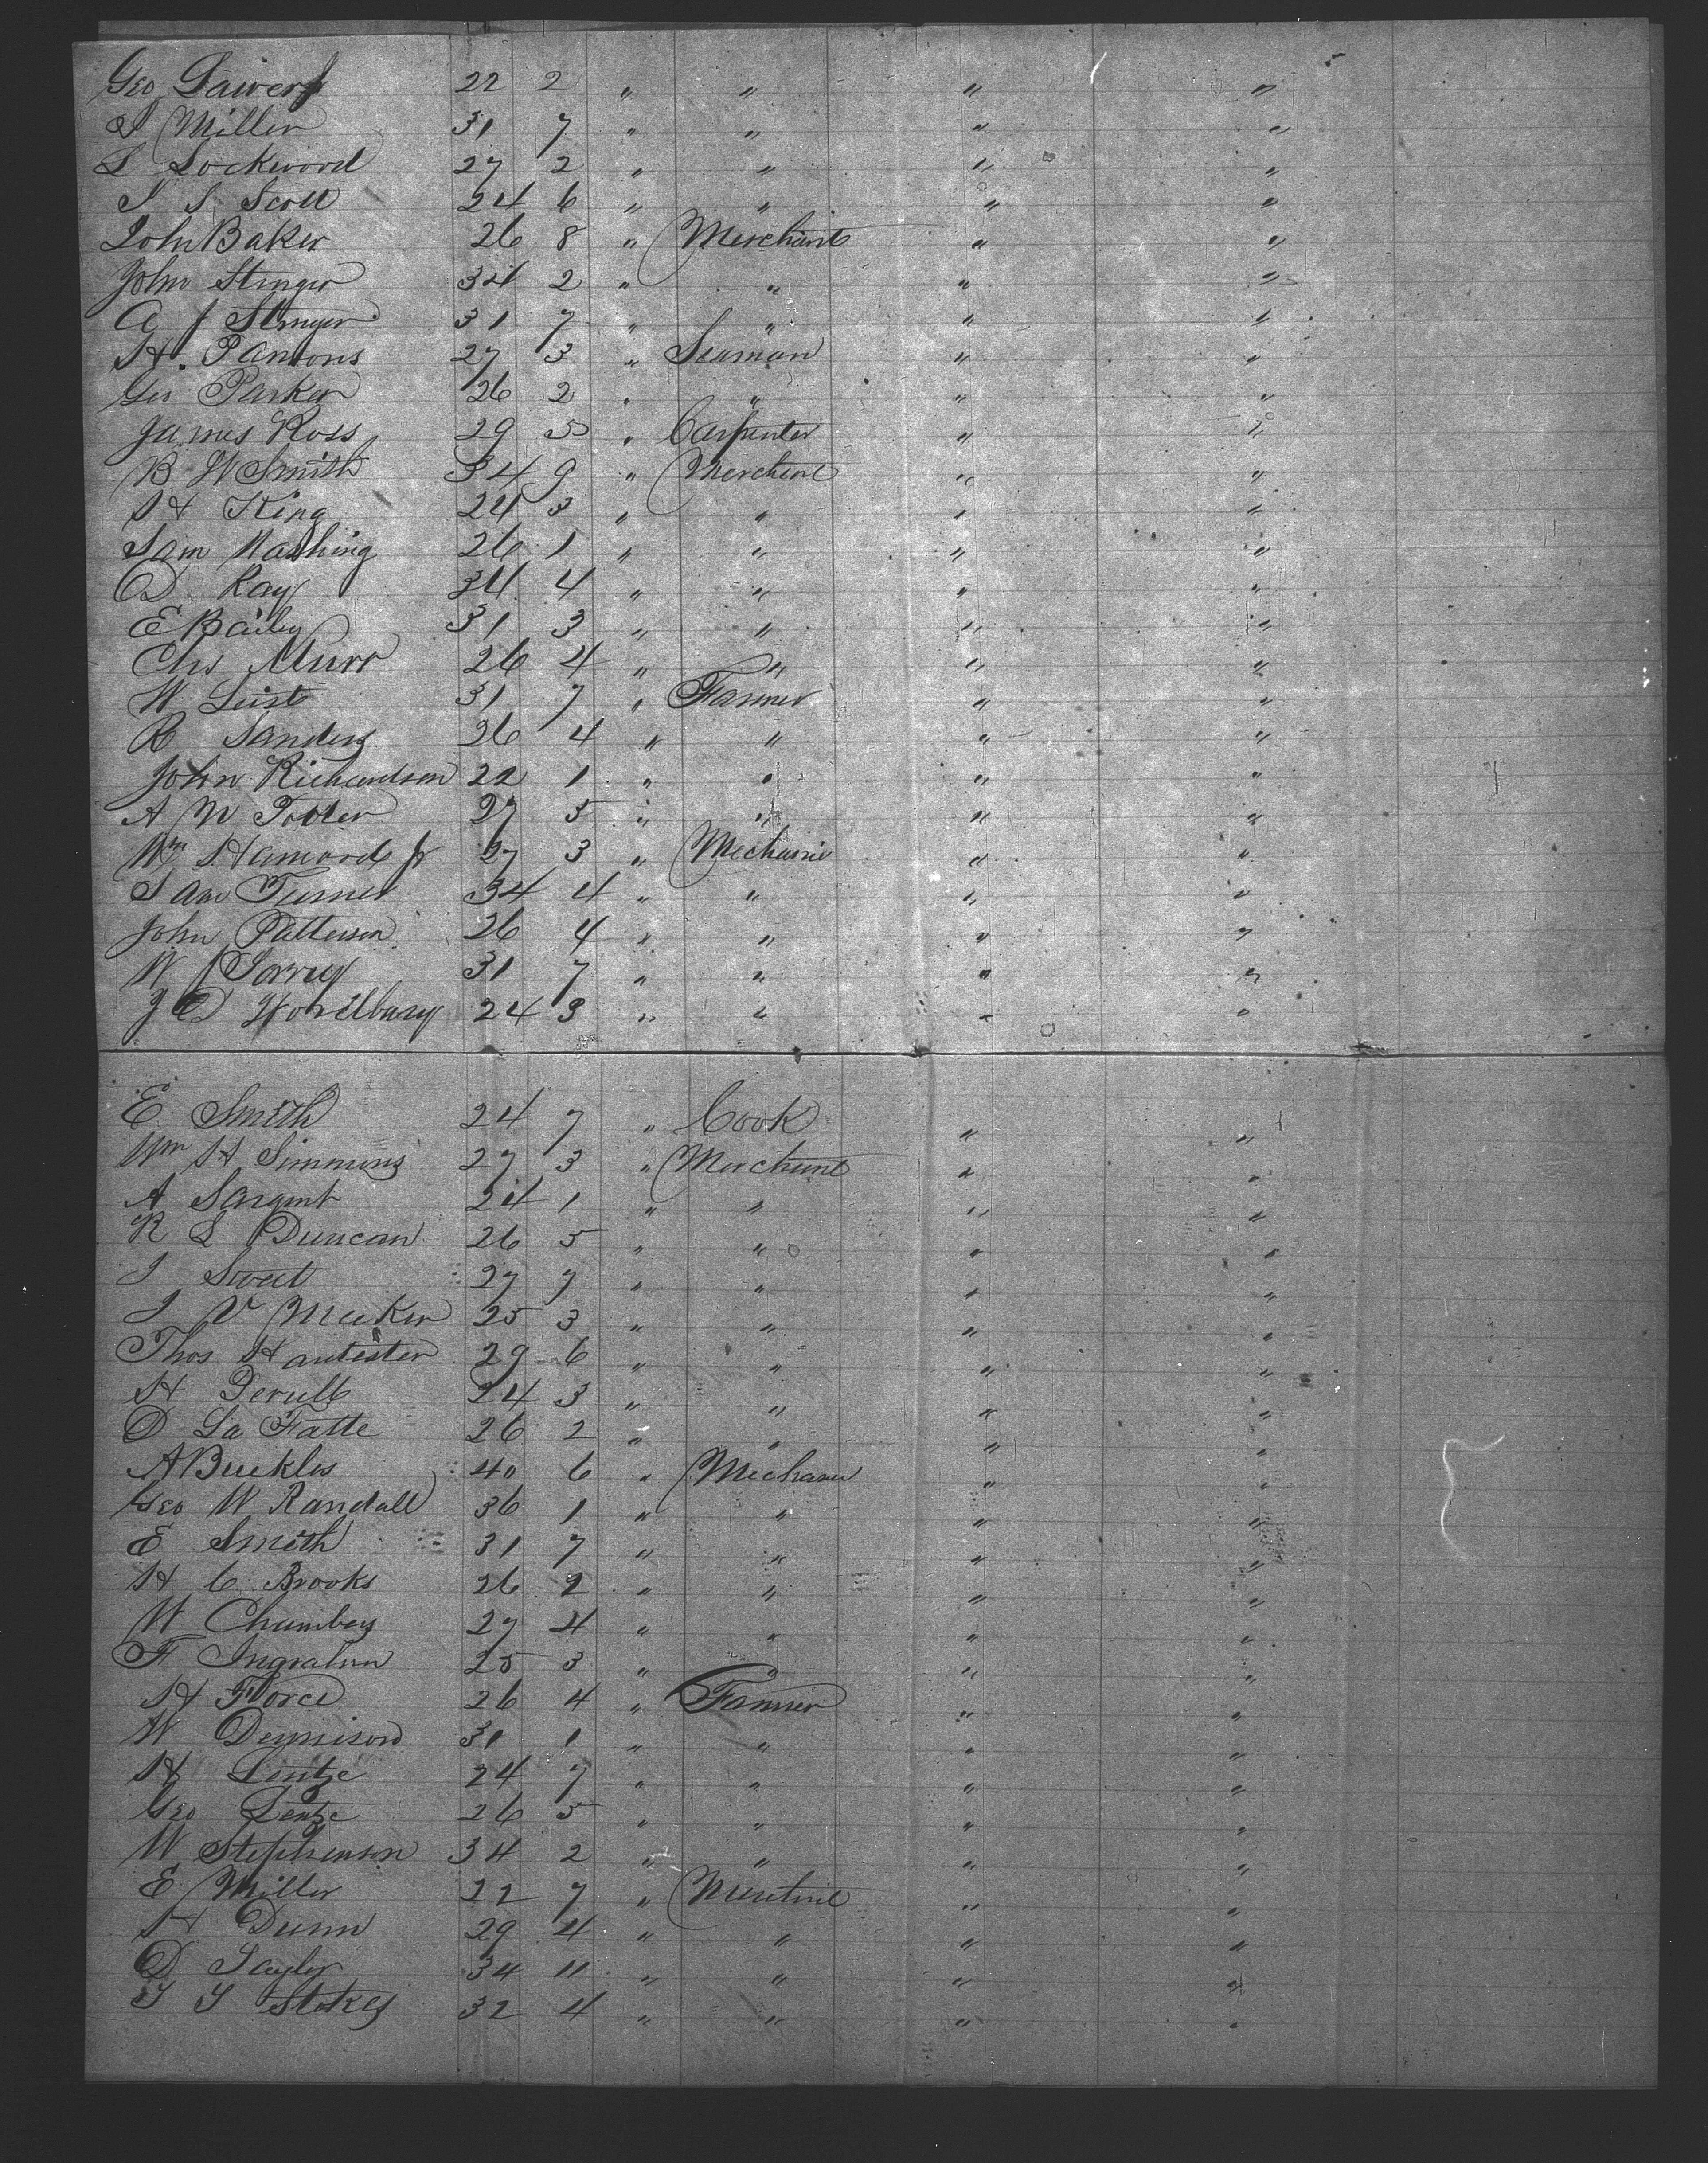 Geo Sawer 22 2 " " " "
S Miller 31 7 " " " "
L Lockwood 27 2 " " " "
J S Scott 24 6 " " " "
John Baker 26 8 " Merchant " "
John Stinger 34 2 " " " "
A J Stinger 31 7 " " " "
H. Parsons 27 3 " Seaman " "
Geo Parker 26 2 " " " "
James Ross 29 5 " Carpenter " "
B W Smith 34 9 " Merchant " "
H King 24 3 " " " "
Sam Nashing 26 1 " " " "
D. Ray 34 4 " " " "
E Bailey 31 3 " " " "
Chs Murr 26 4 " " " "
W Lust 31 7 " Farmer " "
R Sanders 26 4 " " " "
John Richardson 22 1 " " " "
A W Potter 27 5 " " " "
Wm Hamond Jr 27 3 " Mechanic " "
Sam Turner 34 4 " " " "
John Patterson 26 4 " " " "
W J Torrey 31 7 " " " "
J D Woodbury 24 3 " " " "
E. Smith 24 7 " Cook " "
Wm H Simmons 27 3 " Merchant " "
A Sargent 24 1 " " " "
R L Duncan 26 5 " " " "
J Sweet 27 7 " " " "
J V Meeker 25 3 " " " "
Thos Hautester 29 6 " " " "
H 24 3 " " " "
D La Fatte 26 2 " " " "
A Buckles 40 6 " Mechanic " "
Geo W Randall 36 1 " " " "
E Smith 31 7 " " " "
H C Brooks 26 2 " " " "
W Chambers 27 4 " " " "
F Ingraham 25 3 " " " "
H Force 26 4 " Farmer " "
W Dennison 31 1 " " " "
H Lentze 24 7 " " " "
Geo Lentze 26 5 " " " "
W Stephenson 34 2 " " " "
E Miller 22 7 " " "
H Dunn 29 4 " " " "
D Taylor 34 11 " " " "
T S Stokes 32 4 " " " "